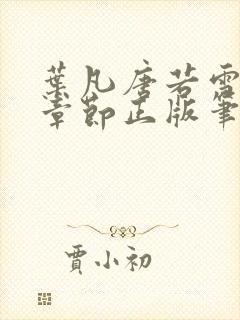 葉凡唐若雪
章節正版筆
賈小初